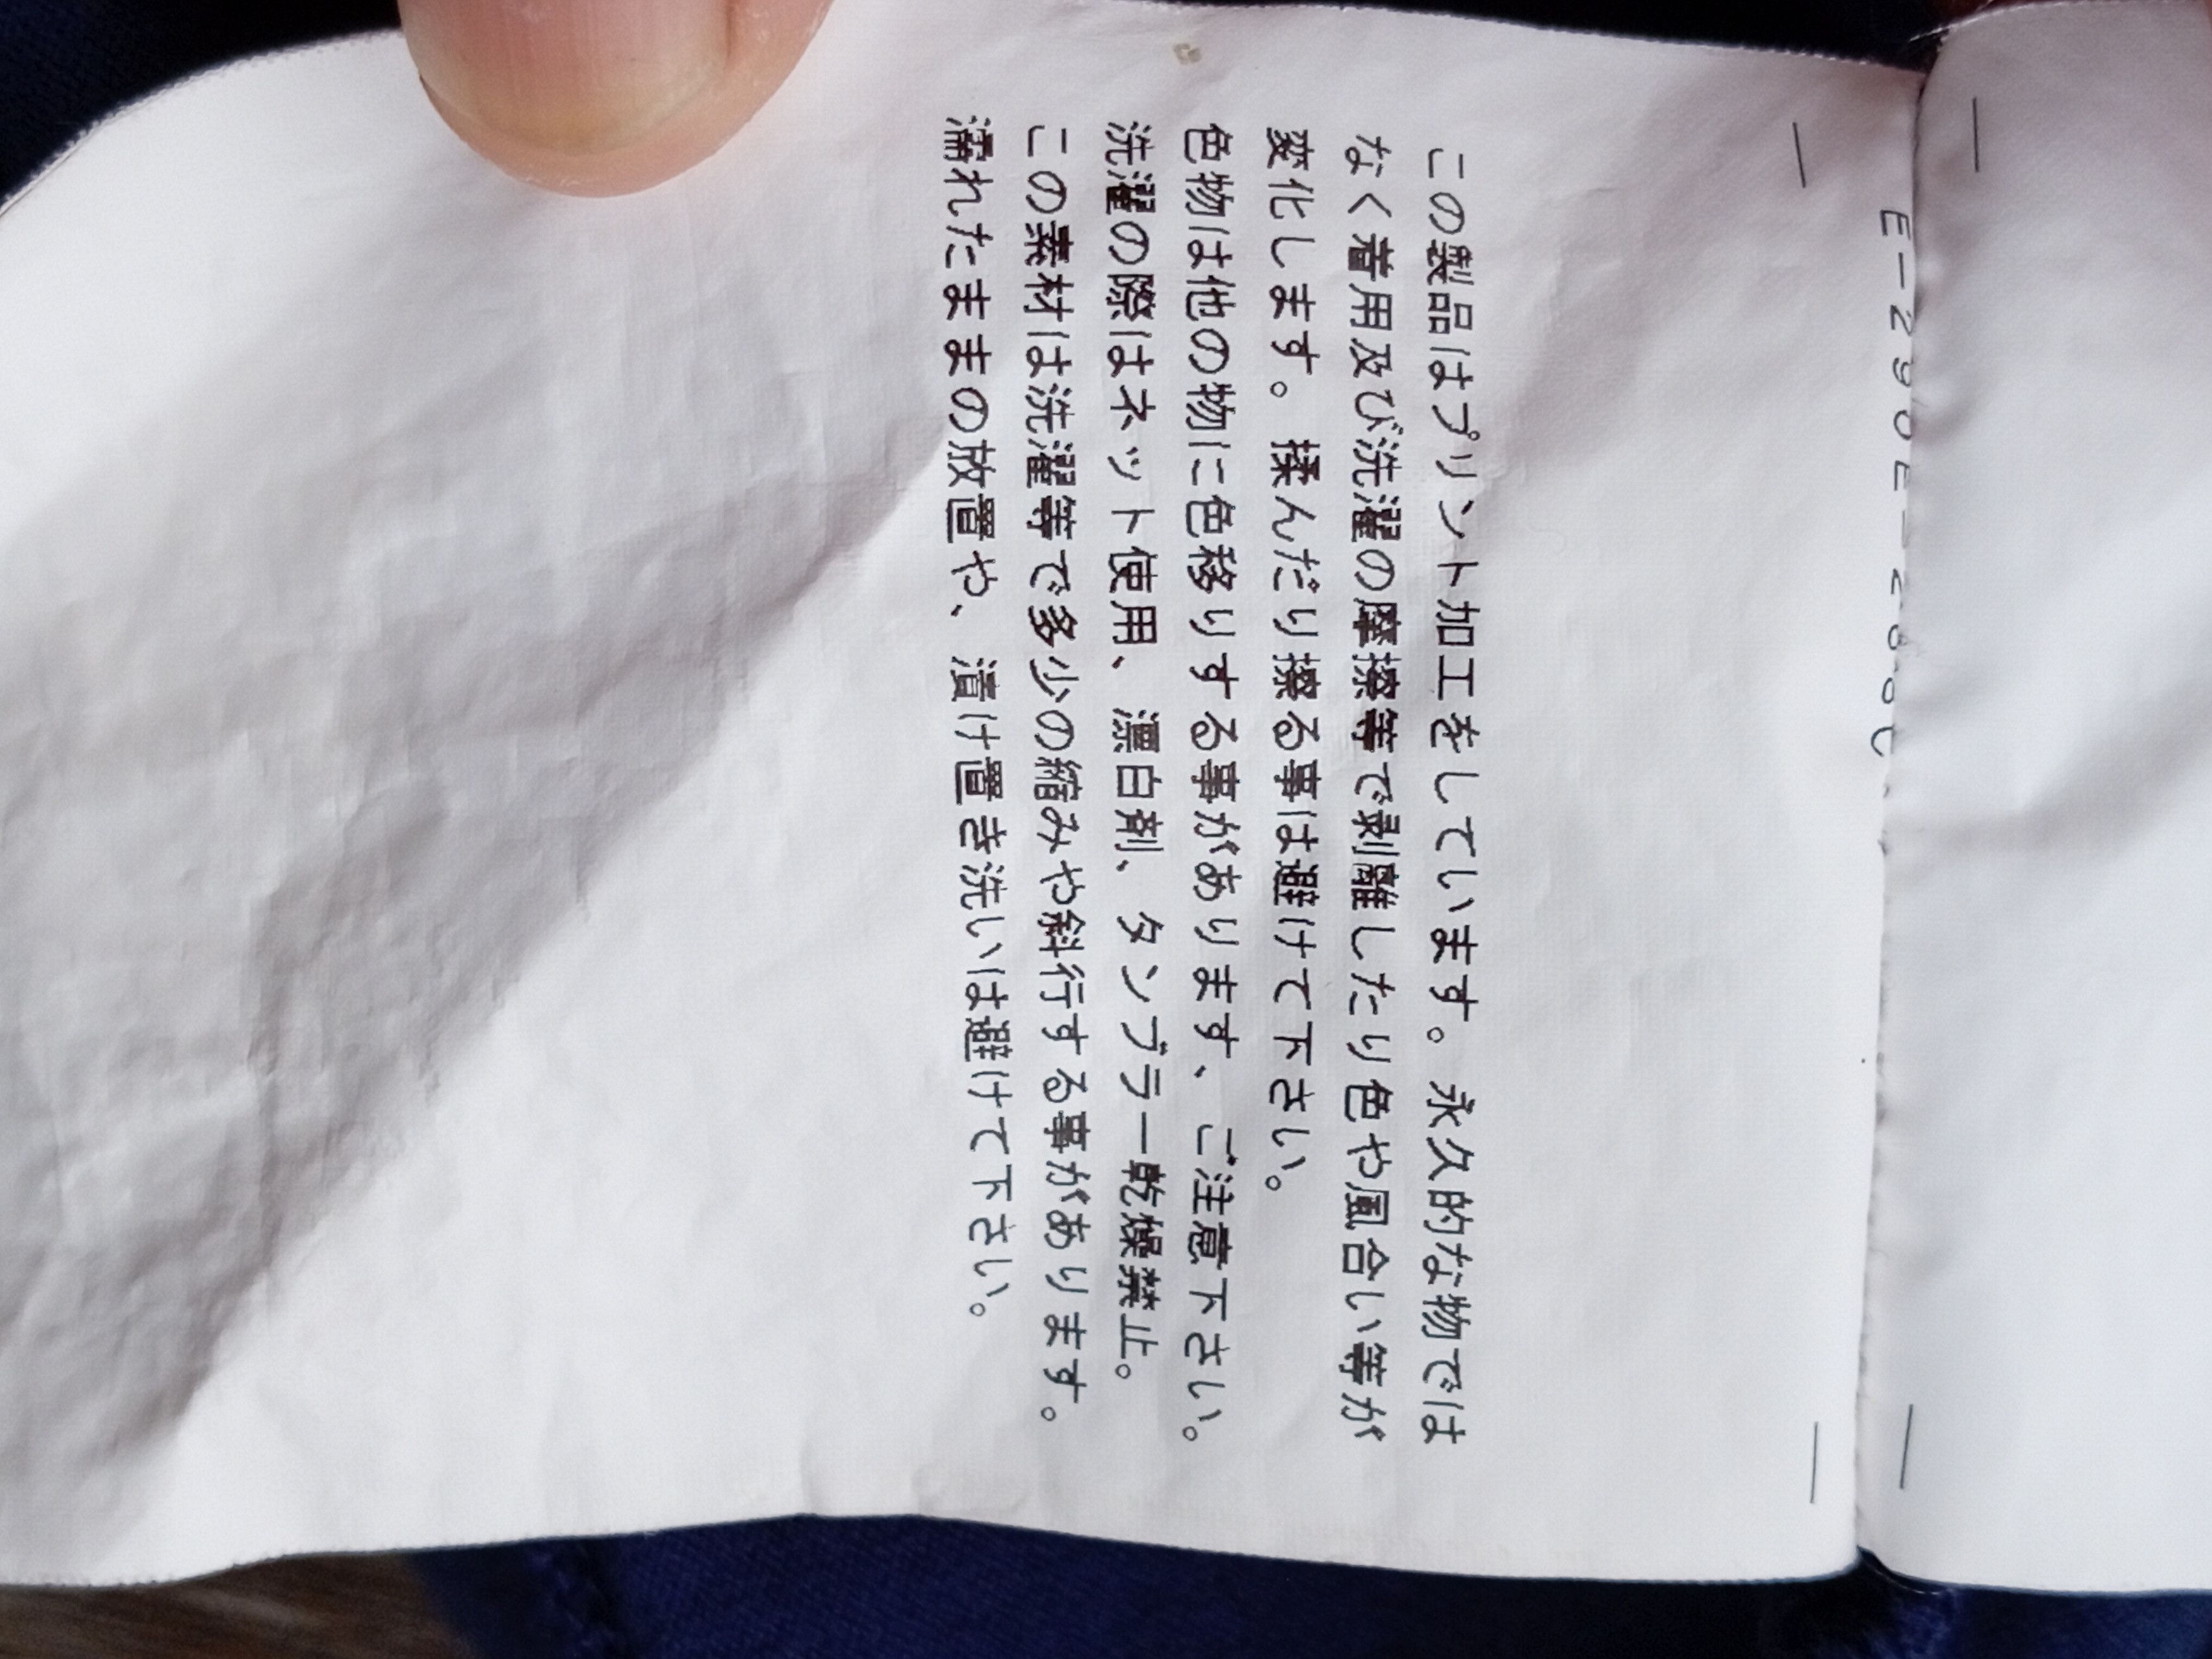 この製品はプリント加工をしています。永久的な物では
なく着用及び洗濯の摩擦等で剥離したり色や風合い等が
変化します。揉んだり擦る事は避けて下さい。
色物は他の物に色移りする事があります、ご注意下さい。
洗濯の際はネット使用、漂白剤、タンブラー乾燥禁止。
この素材は洗濯等で多少の縮みや斜行する事があります。
濡れたままの放置や、漬け置き洗いは避けて下さい。